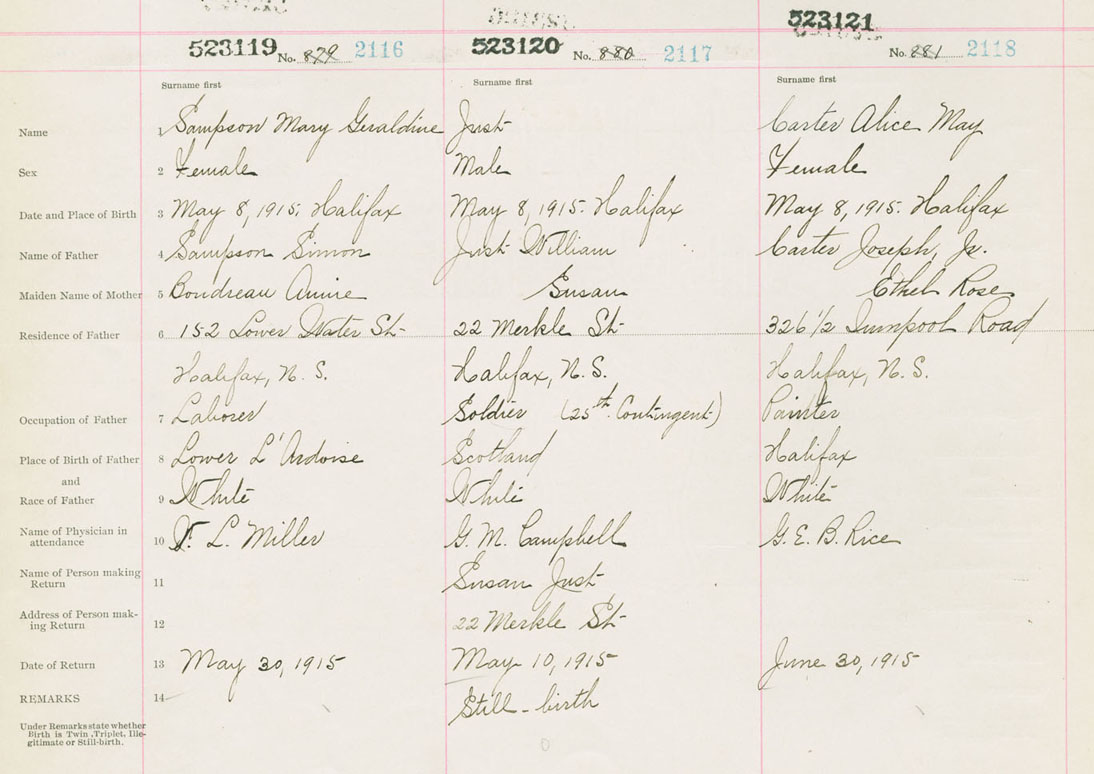 523119 No. 879 2116 523120 No. 880 2117 523121 No. 881 2118
Surname first Surname first Surname first
Name 1 Sampson Mary Geraldine Just Carter Alice May
Sex 2 Female Male Female
Date and Place of Birth 3 May 8, 1915. Halifax May 8, 1915. Halifax May 8, 1915. Halifax
Name of Father 4 Sampson Simon Just William Carter Joseph, Jr.
Maiden Name of Mother 5 Boudreau Annie Susan Ethel Rose
Residence of Father 6 152 Lower Water St. 22 Merkle St. 326 1/2 Road
Halifax, N. S. Halifax, N. S. Halifax, N. S.
Occupation of Father 7 Laborer Soldier (25th Contingent) Painter
Place of Birth of Father 8 Lower L'Ardoise Scotland Halifax
and
Race of Father 9 White White White
Name of Physician in
attendance 10 L. Miller G. M. Campbell G. E. B. Rice
Name of Person making
Return 11 Susan Just
Address of Person mak-
ing Return 12 22 Merkle St.
Date of Return 13 May 30, 1915 May 10, 1915 June 30, 1915
REMARKS 14 Still-birth
Under Remarks state whether
Birth is Twin, Triplet, Ille-
gitimate or Still-birth.